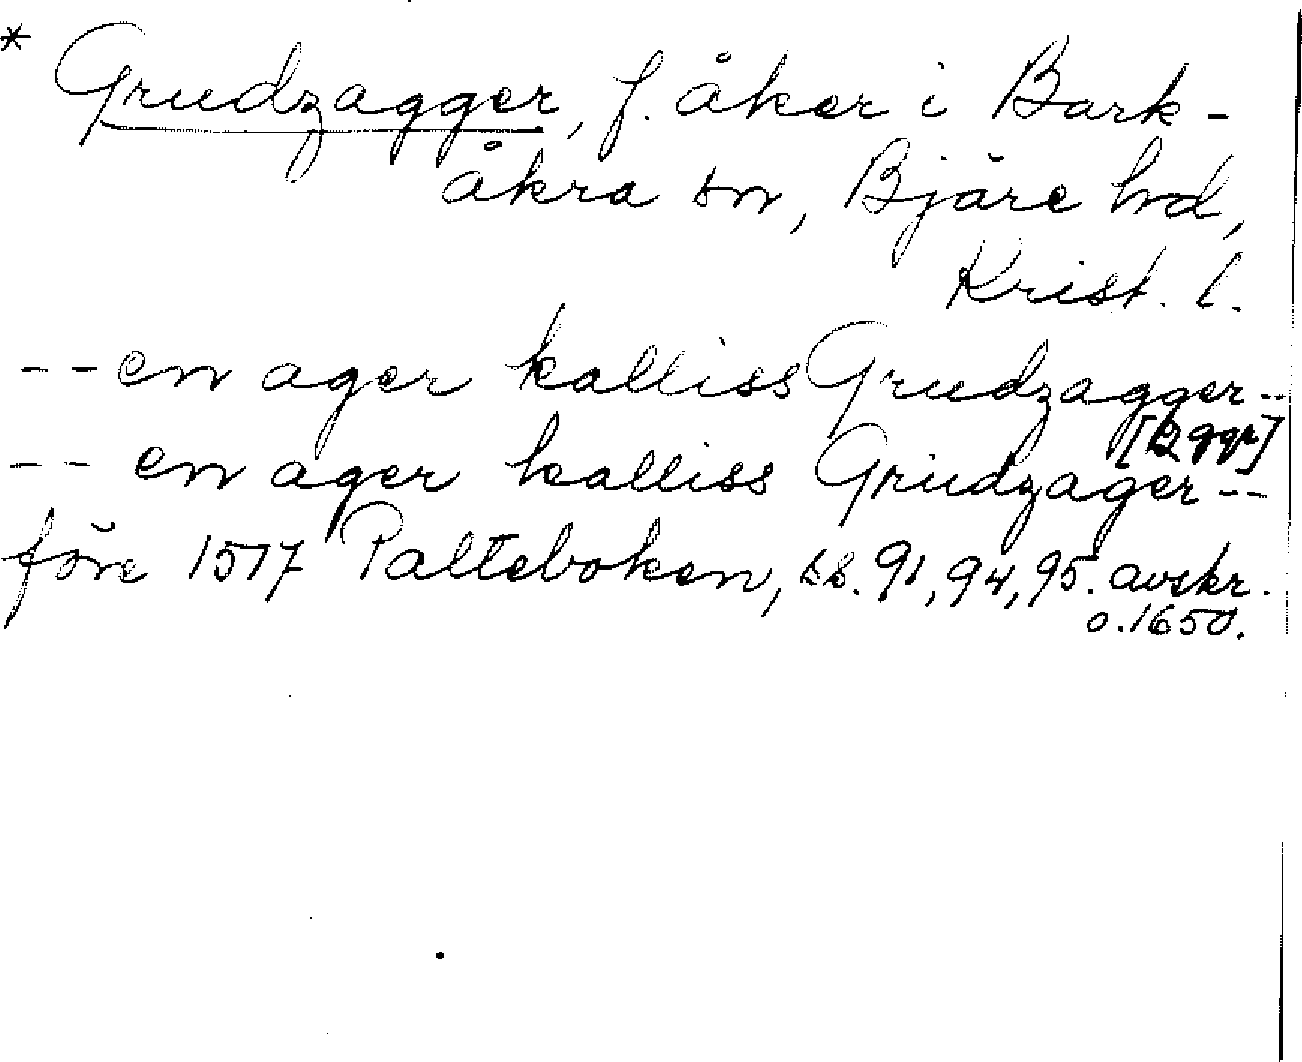 * Grudzagger, f. åker i Bark-
åkra sn, Bjäre hd,
Krist. l.
-- en ager kalliss Grudzagger --
[2 ggr]
-- en ager kalliss Grudzager --
före 1517 Palteboken, ss. 91, 94, 95. avskr.
o. 1650.